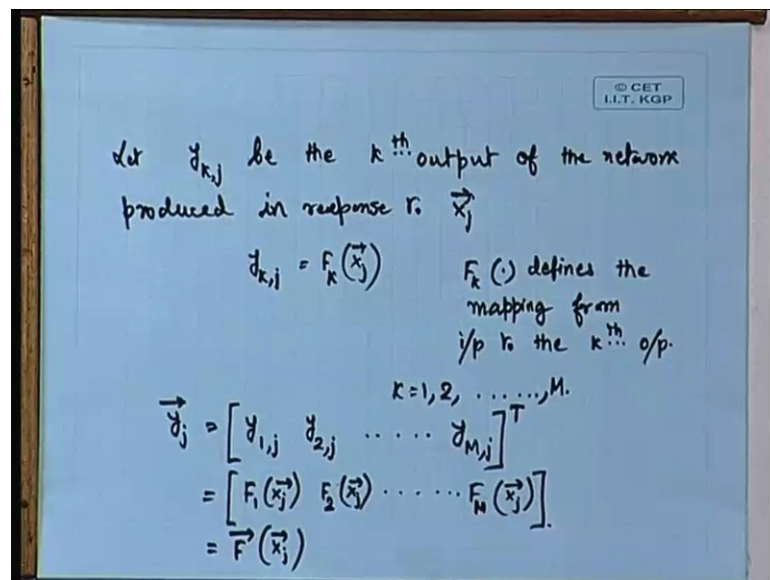 © CET
I.I.T. KGP
Let y_{k,j} be the k^{th} output of the network
produced in response to \vec{x_j}
y_{k,j} = F_k(\vec{x_j})
F_k(·) defines the
mapping from
i/p to the k^{th} o/p.
k=1,2, ......,M.
\vec{y_j} = [y_{1,j} y_{2,j} ..... y_{M,j}]^T
= [F_1(\vec{x_j}) F_2(\vec{x_j}) ...... F_M(\vec{x_j})].
= \vec{F}(\vec{x_j})